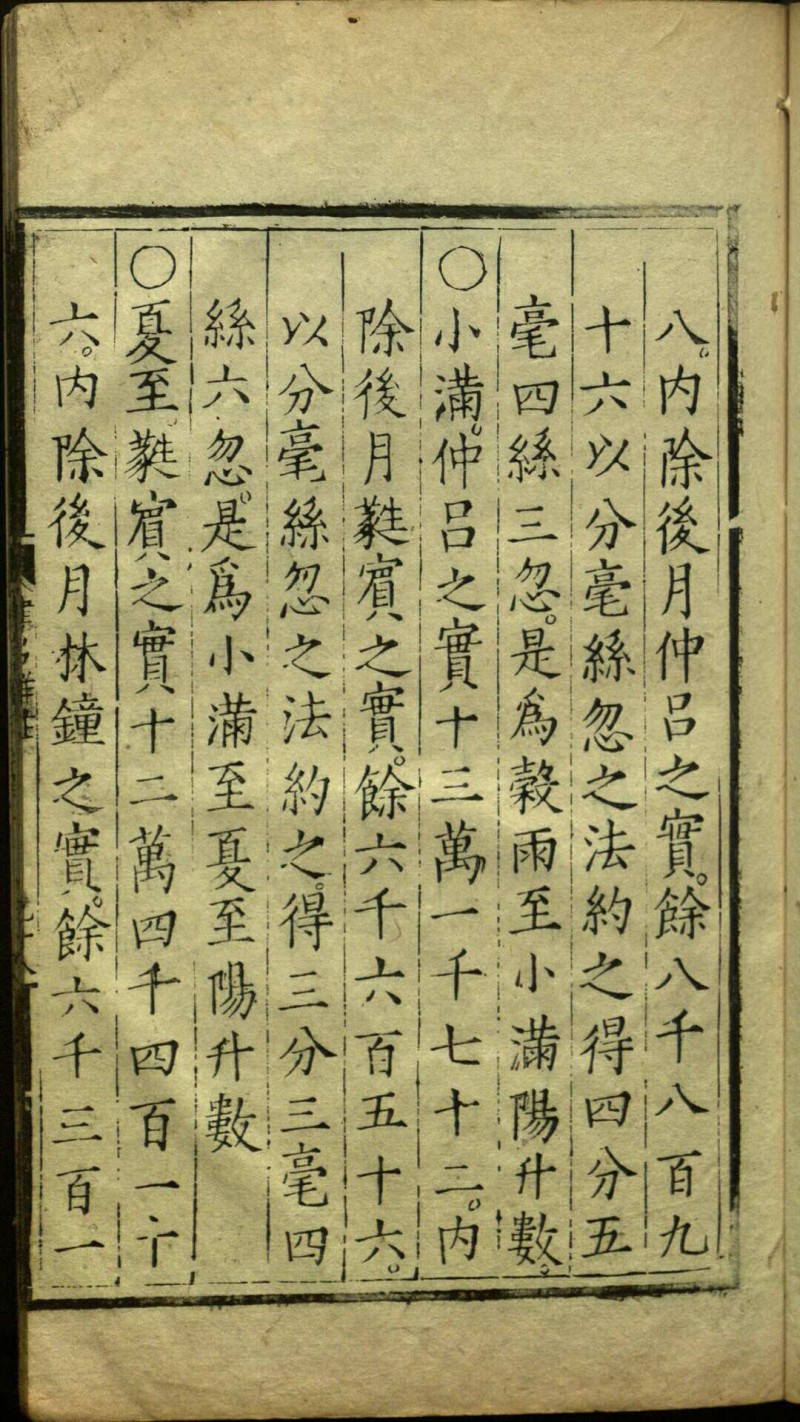 八。内除後月仲呂之實。餘八千八百九
十六以分毫絲忽之法約之得四分五
毫四絲三忽。是爲穀雨至小滿陽升數。
○小滿。仲呂之實十三萬一千七十二。内
除後月蕤賓之實。餘六千六百五十六。
以分毫絲忽之法約之。得三分三毫四
絲六忽。是爲小滿至夏至陽升數
○夏至蕤賓之實十二萬四千四百一十
六。内除後月林鐘之實。餘六千三百一